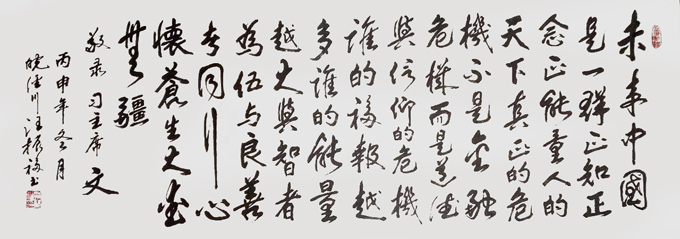 未来中國
是一群正知正
念正能量人的
天下真正的危
機不是金融
危機而是道德
與信仰的危機
誰的福報越
多誰的能量
越大與智者
為伍与良善
者同行心
懷蒼生大爱
無疆
敬录习主席文
丙申年冬月
汪振福书